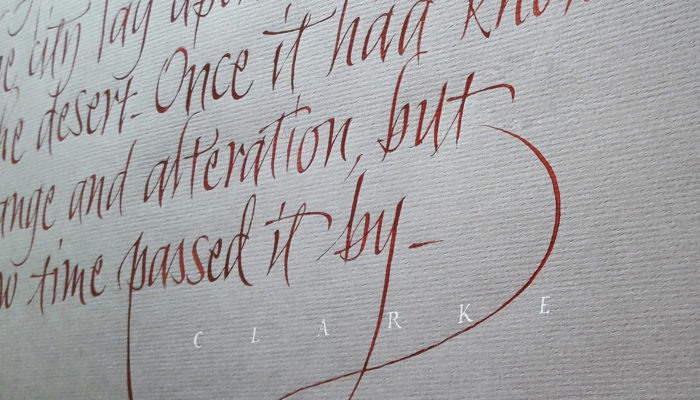 e city lay upon
he desert. Once it had know
ange and alteration, but
w time passed it by –
CLARKE